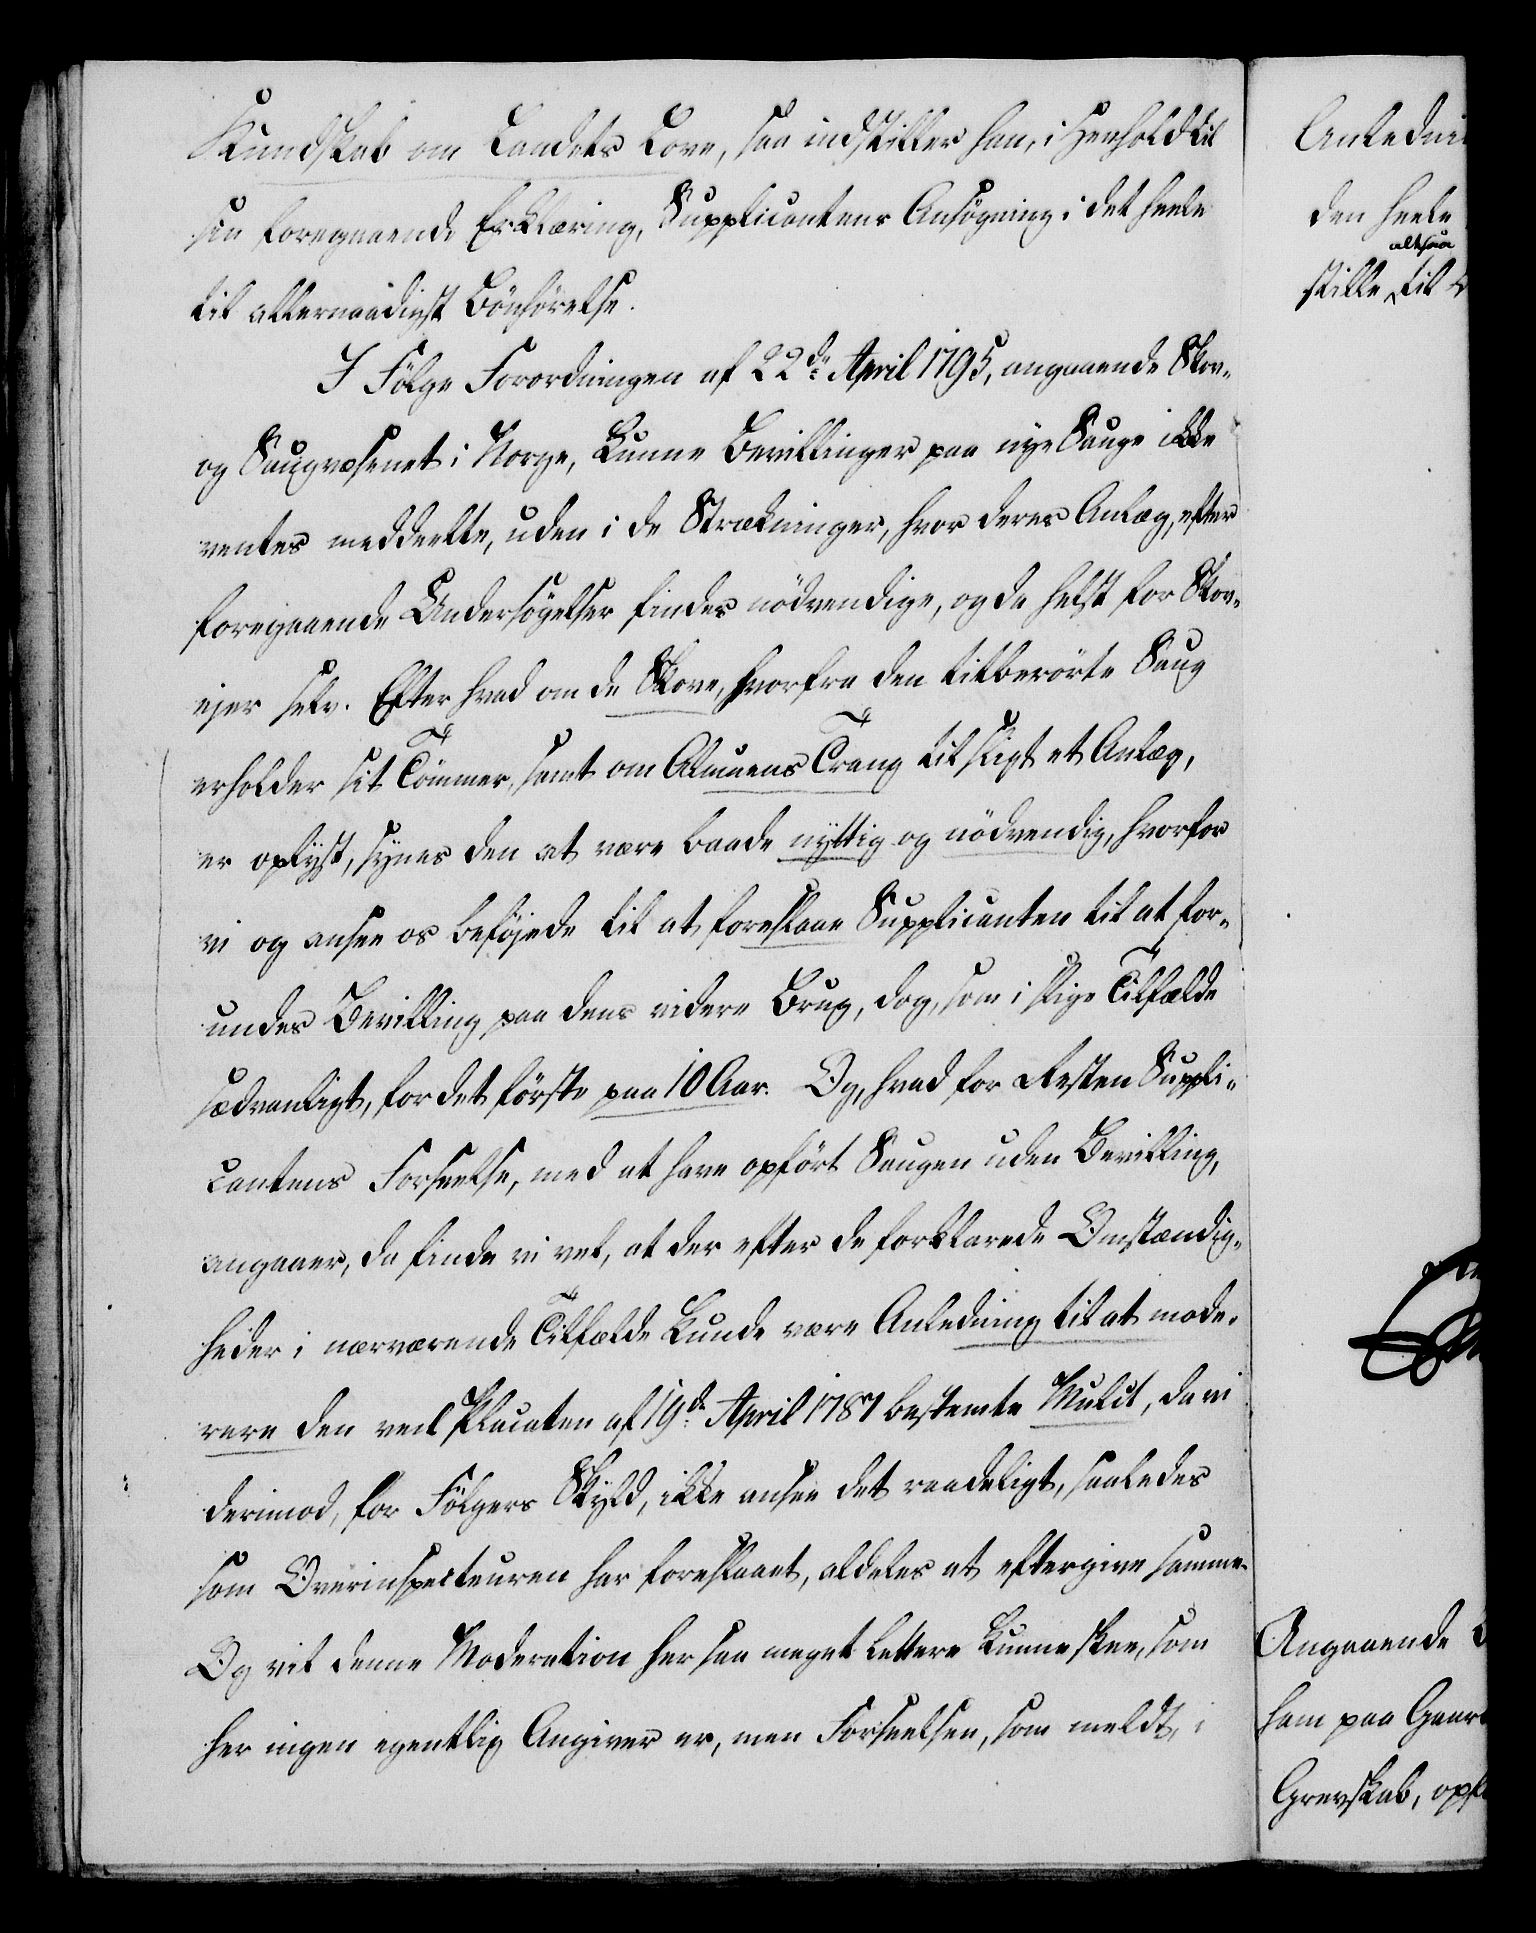 Kundskab om Landets Love, saa indstiller han, i Henhold til
sin foregaaende Erklæring, Supplicantens Ansögning i det heele
til allernaadigst Bönhörelse.
I Fölge Forordningen af 22de April 1795, angaaende Skov-
og Saugvæsenet i Norge, kunne Bevillinger paa nye Sauge ikke
ventes meddeelte, uden i de Strækninger, hvor deres Anlæg, efter
foregaaende Undersögelser findes nödvendige, og da helst for Skov-
ejer selv. Efter hvad om de Skove, hvorfra den titberörte Saug
erholder sit Tömmer, samt om Almuens Trang til sligt et Anlæg,
er oplyst, synes den at være baade nyttig og nödvendig, hvorfor
vi og ansee os beföjede til at foreslaae Supplicanten til at for-
undes Bevilling paa dens videre Brug, dog, som i slige Tilfælde
sædvanligt, for det förste paa 10 Aar. Og, hvad for Resten Suppli-
cantens Forseelse, med at have opfört Saugen uden Bevilling,
angaaer, da finde vi vel, at der efter de forklarede Omstændig-
heder i nærværende Tilfælde kunde være Anledning til at mode-
rere den ved Placaten af 19de April 1787 bestemte Mulct, da vi
derimod, for Fölgers Skyld, ikke ansee det raadeligt, saaledes
som Overinspecteuren har foreslaaet, aldeles at eftergive samme.
Og vil denne Moderation her saa meget lettere kunne skee, som
her ingen egentlig Angiver er, men Forseelsen, som meldt, i
den heele
altsaa
stille til
Angaaende
ham paa
Grevskab,